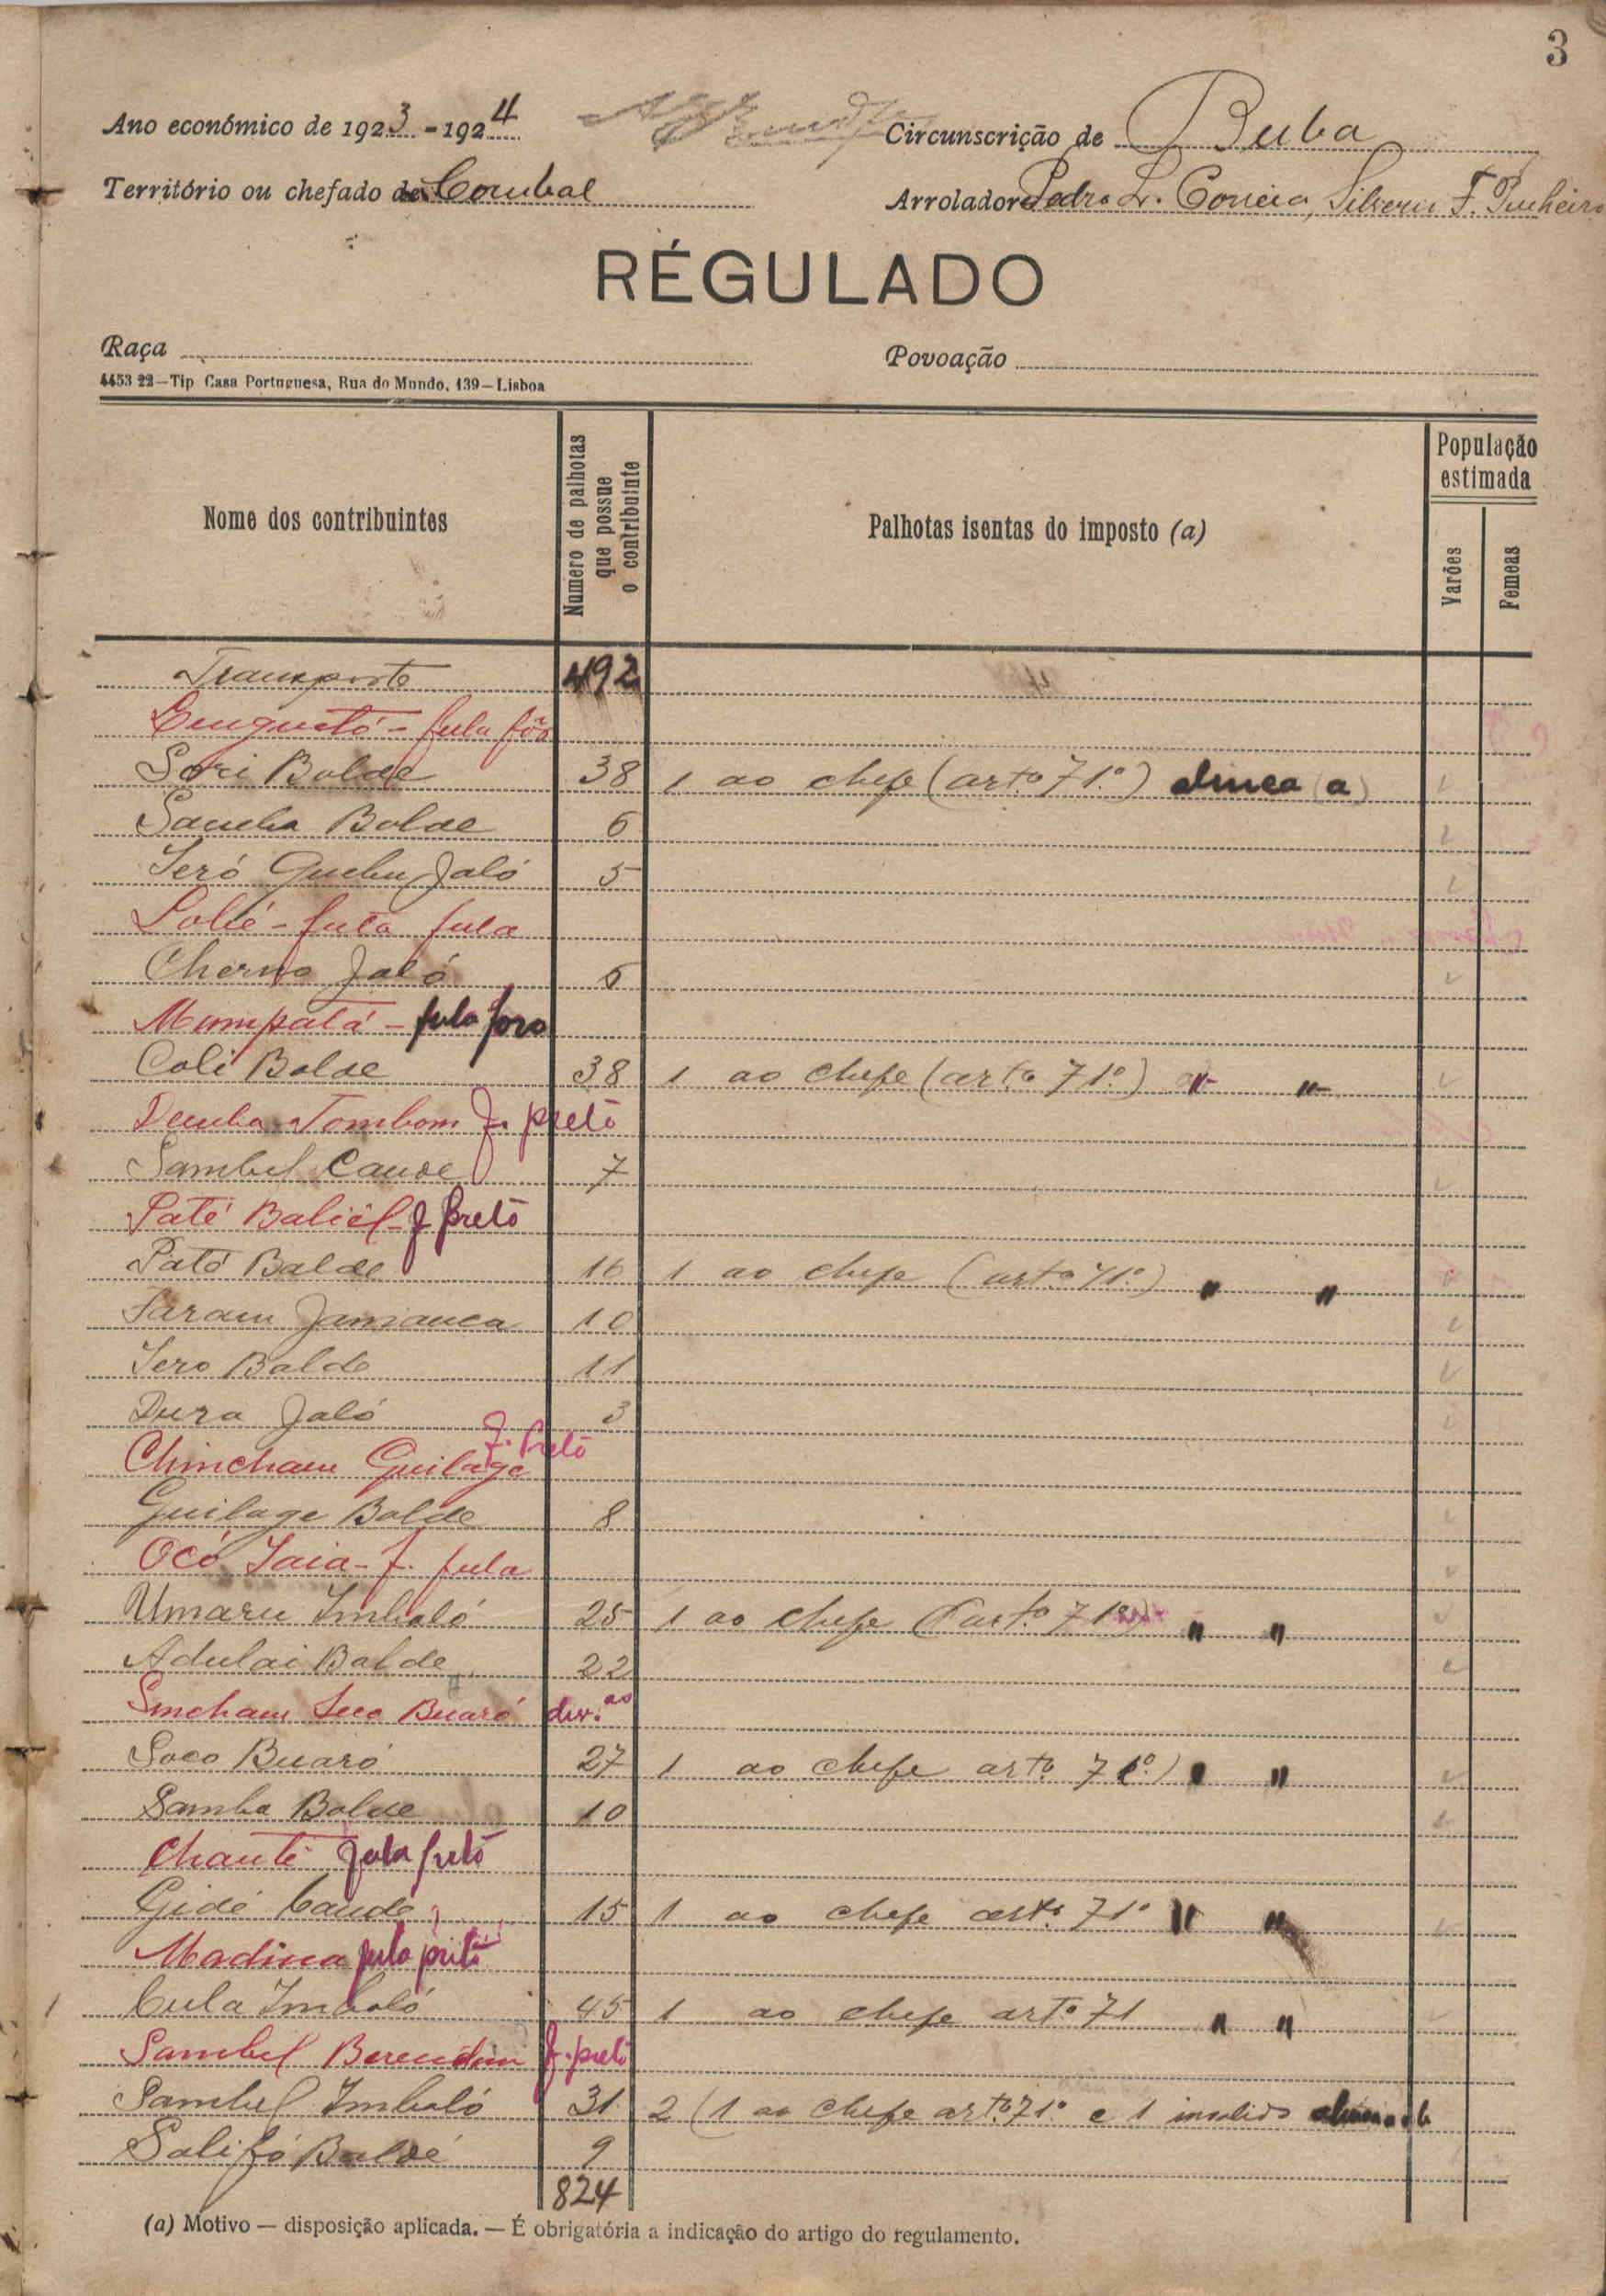 3
Ano económico de 1923-1924
Circunscrição de Buba
Território ou chefado de Corubal
Arrolador Pedro L. Correia, Silverio F. Pinheiro
RÉGULADO
Raça
Povoação
4453 22—Tip Casa Portuguesa, Rua do Mundo, 139—Lisboa
Nome dos contribuintes
Numero de palhotas que possue o contribuinte
Palhotas isentas do imposto (a)
População estimada
Varões
Femeas
Transporte 492
fula fôr
Sori Balde 38 1 ao chefe (artº 71º) alinea (a)
Samba Balde 6
Seró Guebu Jaló 5
Lolié - futa fula
Cherno Jaló 6
Mampatá - fula foro
Coli Balde 38 1 ao chefe (artº 71º) " "
Demba Tombom f. preto
Sambel Cande 7
Paté Baliél - f preto
Paté Balde 16 1 ao chefe (artº 71º) " "
Saram Jamanca 10
Sero Balde 11
Dura Jaló 3
Chincham Guilage f. preto
Guilage Balde 8
Ocó Iaia - f. fula
Umaru Imbaló 25 1 ao chefe (artº 71º) " "
Adulai Balde 22
Sincham Seco Buaró div.as
Soco Buaró 27 1 ao chefe artº 71º) " "
Samba Balde 10
Chanté fula preto
Gidé Cande 15 1 ao chefe artº 71º " "
Madina fula preto
Cula Imbaló 45 1 ao chefe artº 71 " "
Sambel Berendim f. preto
Sambel Imbaló 31 2 (1 ao chefe artº 71º e 1 invalido alinea b
Salifó Baldé 9
824
(a) Motivo — disposição aplicada. — É obrigatória a indicação do artigo do regulamento.